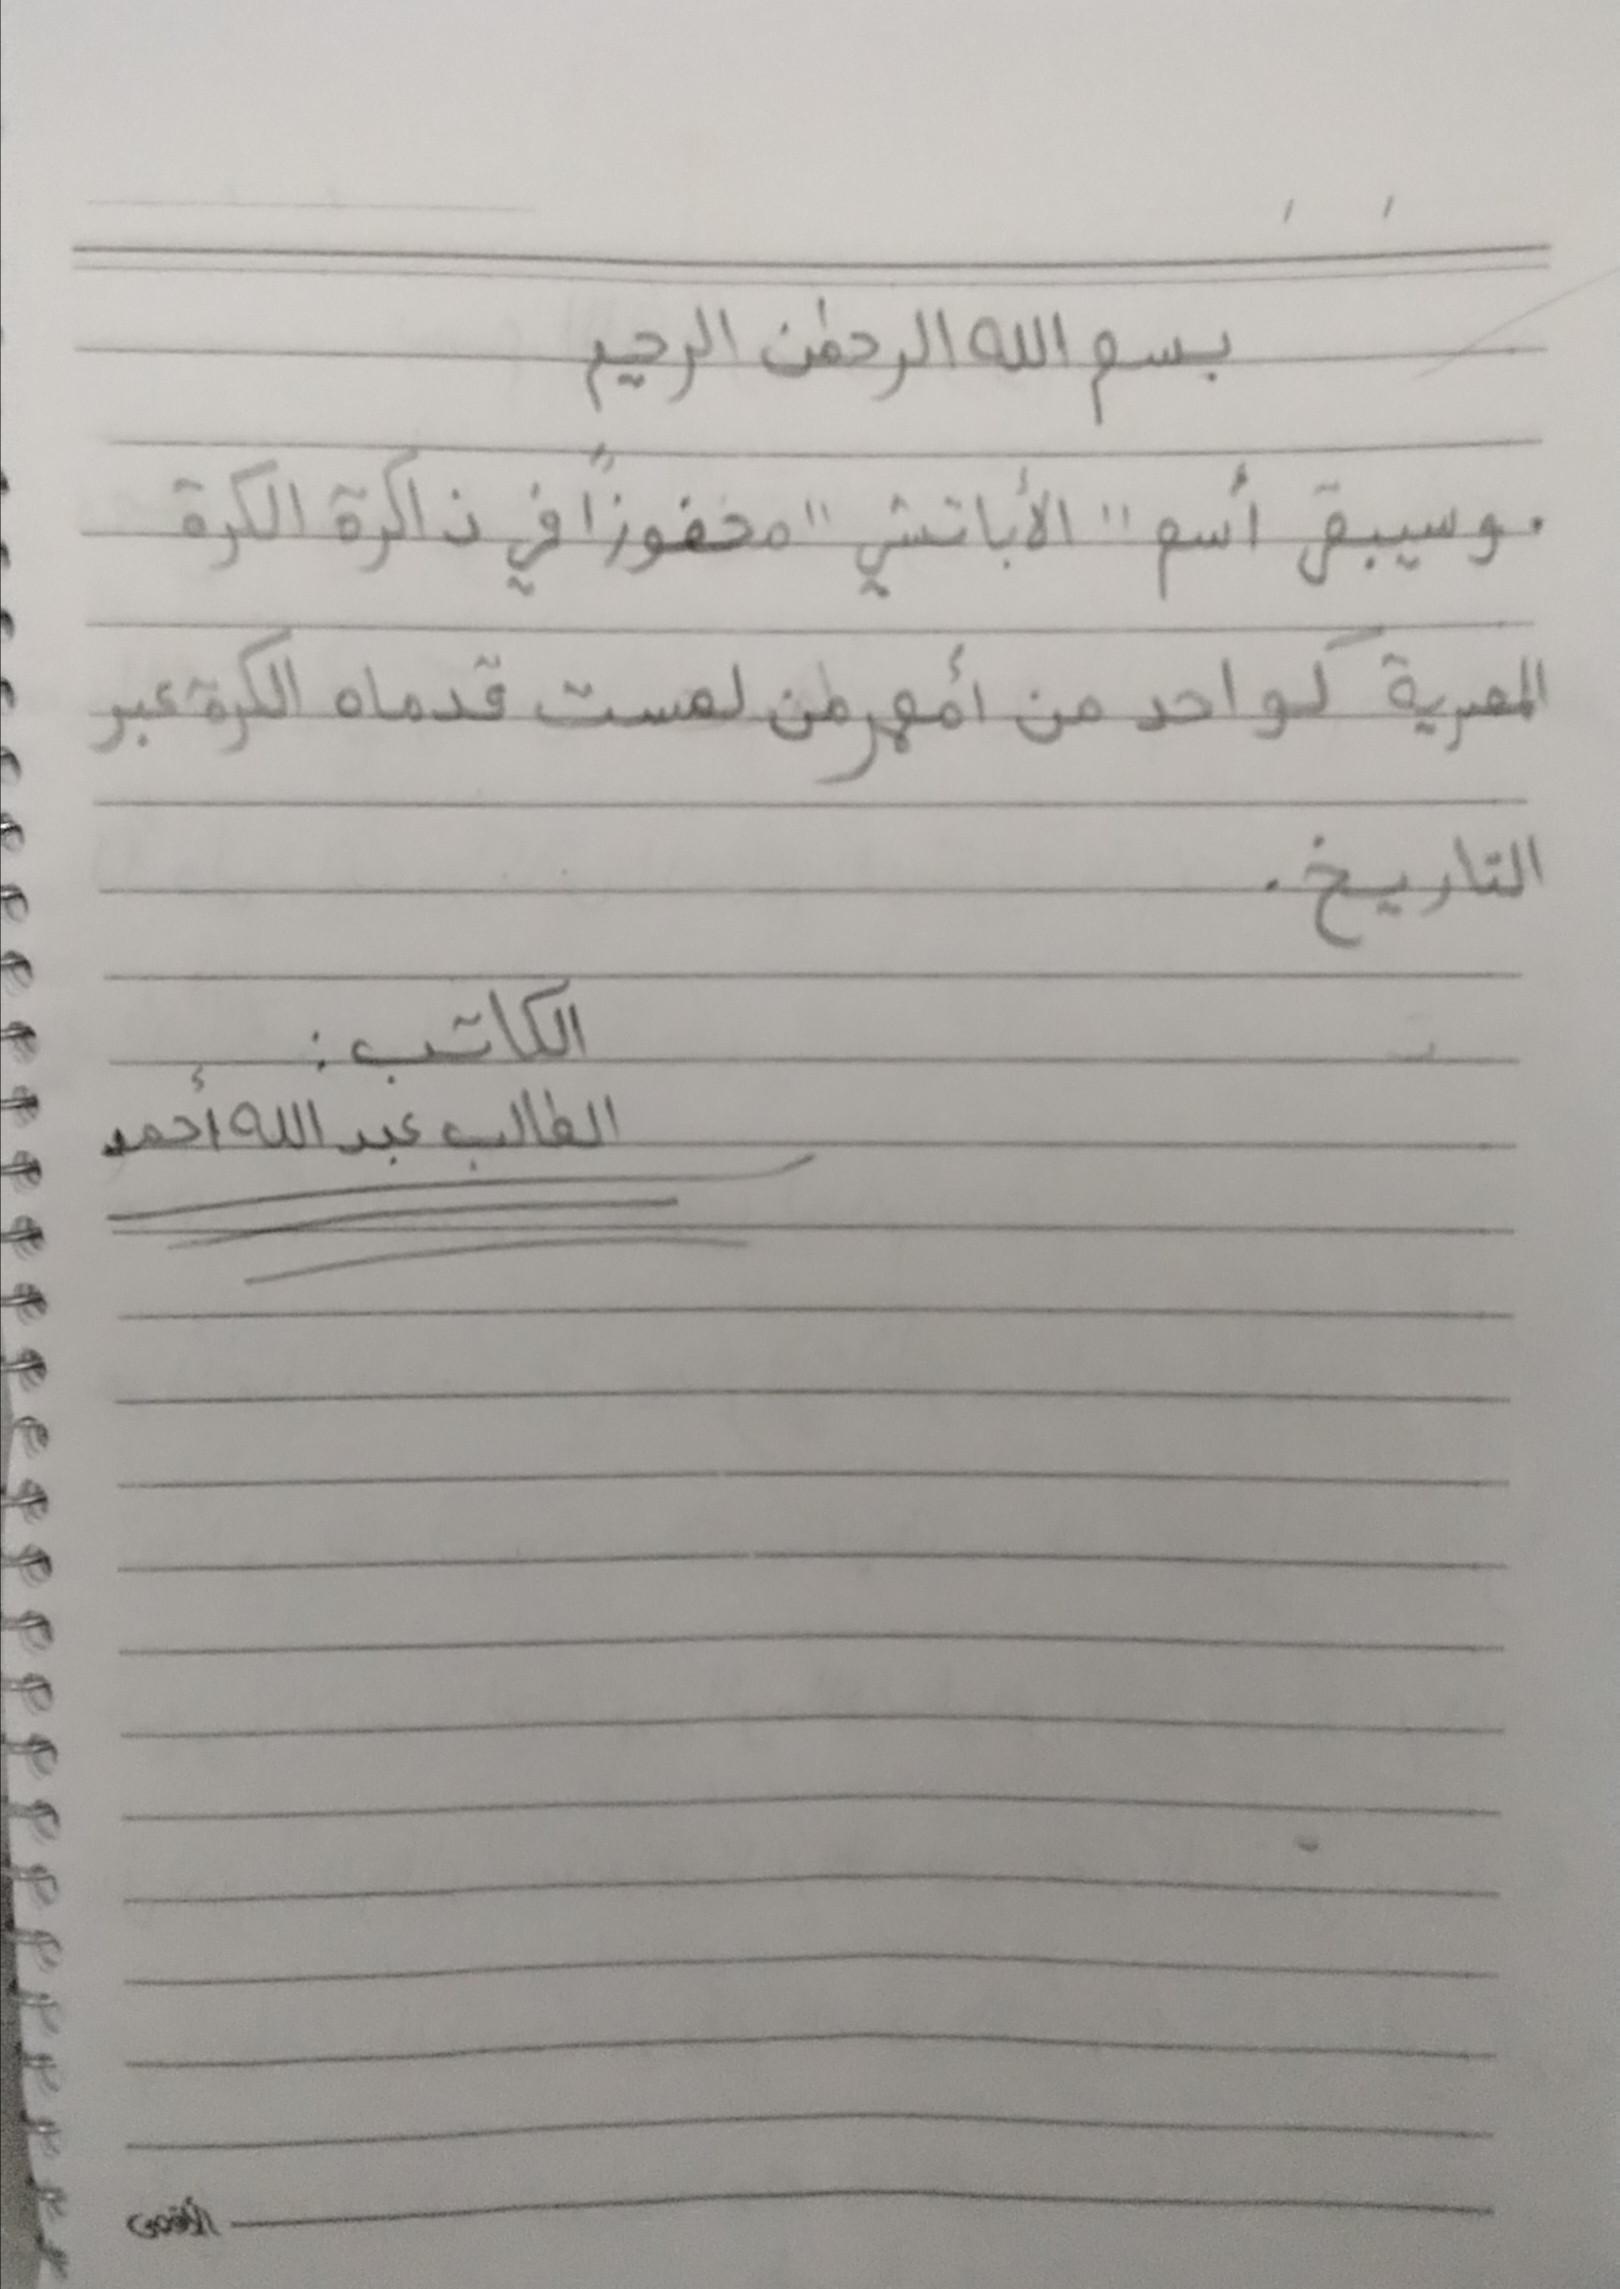 بسم الله الرحمٰن الرحيم
. وسيبقى أسم "الأباتشي" محفورًا في ذاكرة الكرة
المصرية كواحد من أمهر من لمست قدماه الكرة عبر
التاريخ .
الكاتب :
الطالب عبد الله أحمد
الأقصى